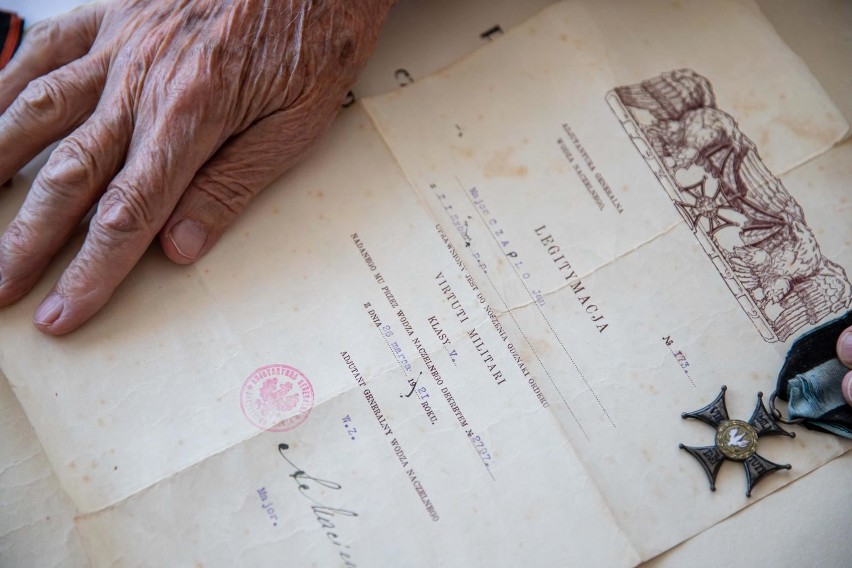 ADJUTANTURA GENERALNA
WODZA NACZELNEGO.
№ 173.
LEGITYMACJA
Major CZAPLO Jan
z p.p.
UPRAWNIONY JEST DO NOSZENIA ODZNAKI ORDERU
VIRTUTI MILITARI
KLASY V.
NADANEGO MU PRZEZ WODZA NACZELNEGO DEKRETEM № 2797.
Z DNIA 26 marca 1921 ROKU.
ADJUTANT GENERALNY WODZA NACZELNEGO
W.Z.
Major.